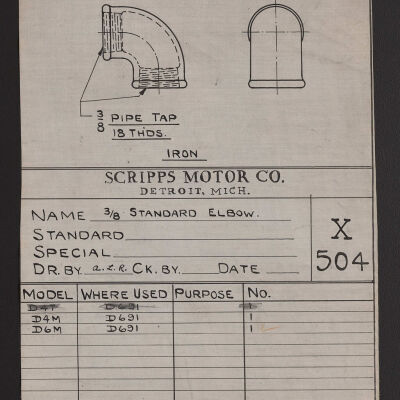 3/8 PIPE TAP
18 TH'DS.
IRON
SCRIPPS MOTOR CO.
DETROIT, MICH.
NAME 3/8 STANDARD ELBOW.
STANDARD
SPECIAL
DR. BY a.L.R. CK. BY. DATE
X
504
MODEL WHERE USED PURPOSE NO.
D4T D691 1
D4M D691 1
D6M D691 1